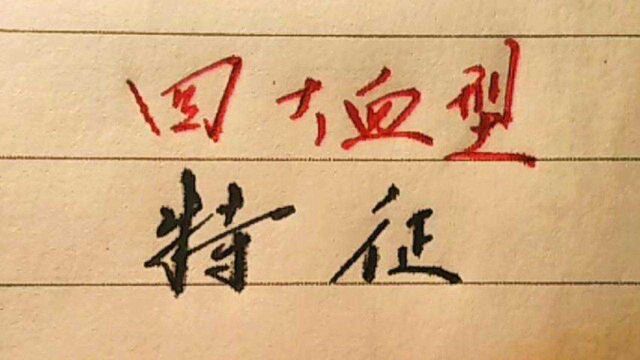 四大血型
特征